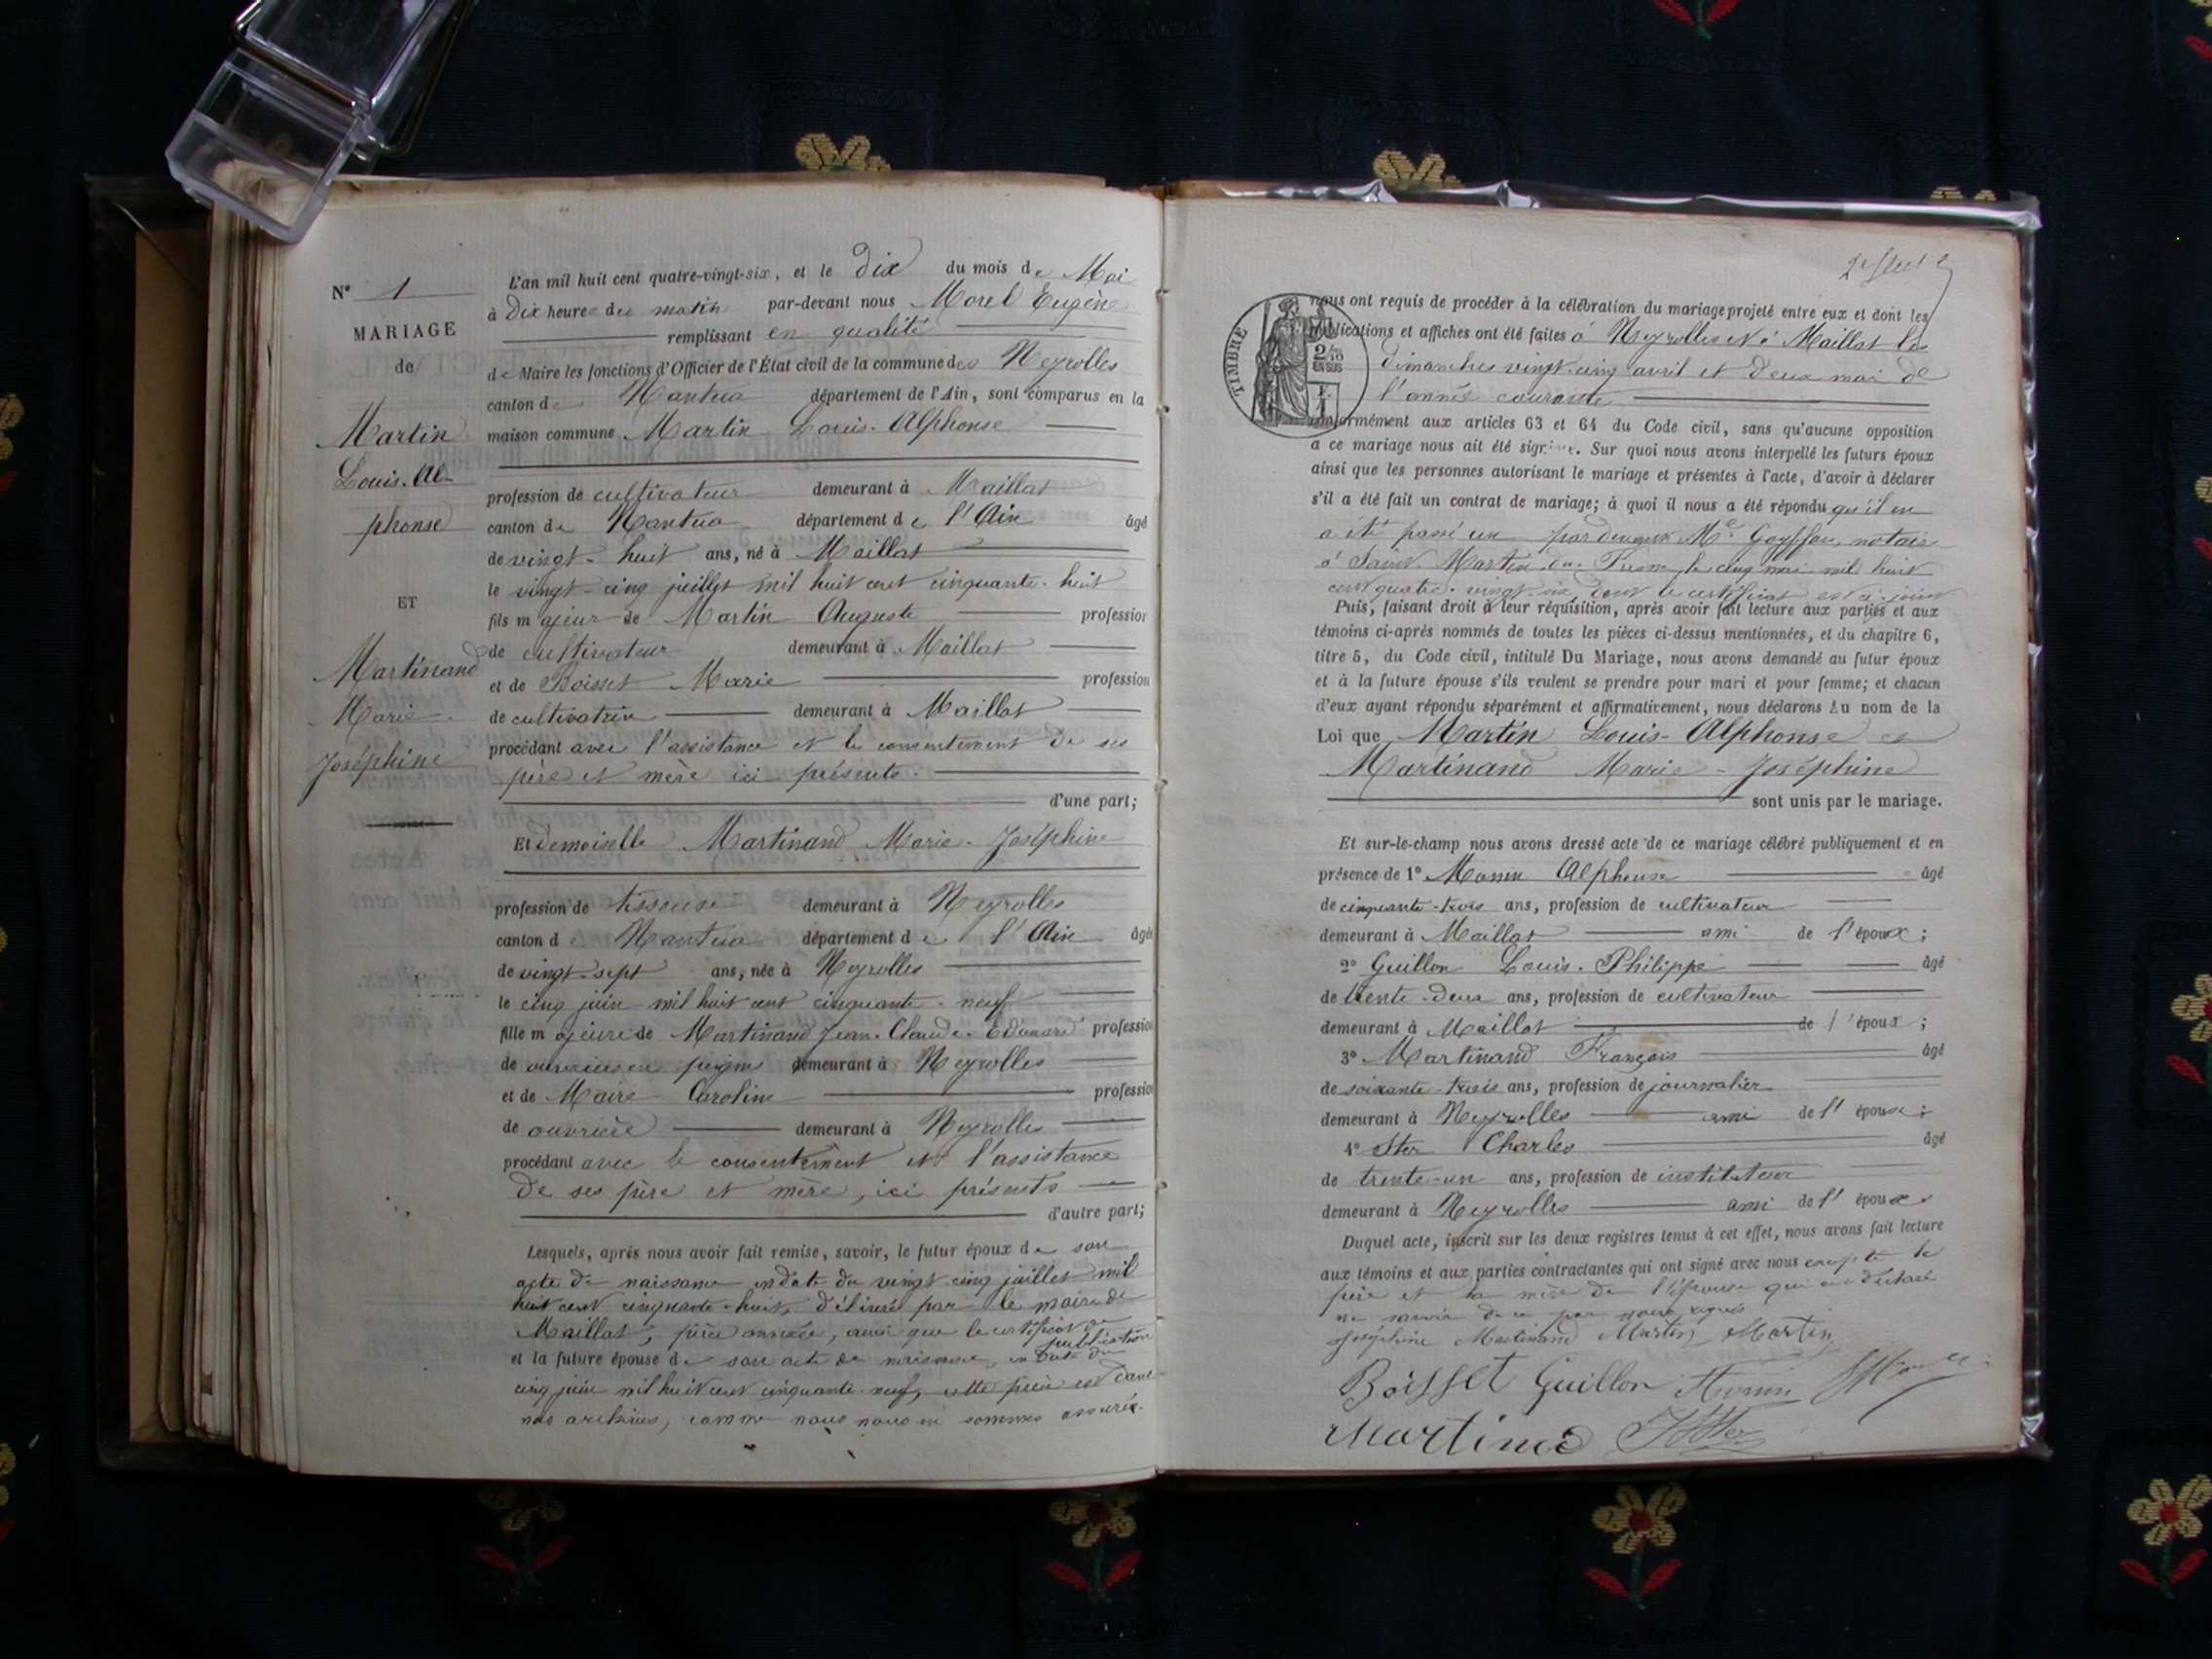 N° 1
MARIAGE
de
Martin
Louis-Al-
phonse
ET
Martinand
Marie-
Joséphine
L'an mil huit cent quatre-vingt-six, et le Dix du mois de Mai
à Dix heures du matin par-devant nous Morel Eugène
remplissant en qualité
de Maire les fonctions d'Officier de l'État civil de la commune des Neyrolles
canton de Nantua département de l'Ain, sont comparus en la
maison commune Martin Louis-Alphonse
profession de cultivateur demeurant à Maillat
canton de Nantua département de l'Ain âgé
de vingt-huit ans, né à Maillat
le vingt-cinq juillet mil huit cent cinquante-huit
fils majeur de Martin Auguste profession
de cultivateur demeurant à Maillat
et de Boisset Marie profession
de cultivatrice demeurant à Maillat
procédant avec l'assistance et le consentement de ses
père et mère ici présents.
d'une part;
Et demoiselle Martinand Marie-Joséphine
profession de tisseuse demeurant à Neyrolles
canton de Nantua département de l'Ain âgée
de vingt-sept ans, née à Neyrolles
le cinq juin mil huit cent cinquante-neuf
fille majeure de Martinand Jean-Claude-Edouard profession
de ouvrier en peignes demeurant à Neyrolles
et de Maire Caroline profession
de ouvrière demeurant à Neyrolles
procédant avec le consentement et l'assistance
de ses père et mère, ici présents
d'autre part;
Lesquels, après nous avoir fait remise, savoir, le futur époux de son
acte de naissance en date du vingt-cinq juillet mil
huit cent cinquante-huit, délivré par le maire de
Maillat, pièce annexée, ainsi que le certificat de
publication
et la future épouse de son acte de naissance, en date du
cinq juin mil huit cent cinquante-neuf, cette pièce est dans
nos archives, comme nous nous en sommes assurés.
nous ont requis de procéder à la célébration du mariage projeté entre eux et dont les
publications et affiches ont été faites à Neyrolles et à Maillat les
dimanches vingt-cinq avril et deux mai de
l'année courante
TIMBRE
conformément aux articles 63 et 64 du Code civil, sans qu'aucune opposition
à ce mariage nous ait été signifiée. Sur quoi nous avons interpellé les futurs époux
ainsi que les personnes autorisant le mariage et présentes à l'acte, d'avoir à déclarer
s'il a été fait un contrat de mariage; à quoi il nous a été répondu qu'il en
a été passé un par devant Me notaire
à Saint-Martin-du-Fresne, le cinq mai mil huit
cent quatre-vingt-six, dont le certificat est ci-joint
Puis, faisant droit à leur réquisition, après avoir fait lecture aux parties et aux
témoins ci-après nommés de toutes les pièces ci-dessus mentionnées, et du chapitre 6,
titre 5, du Code civil, intitulé Du Mariage, nous avons demandé au futur époux
et à la future épouse s'ils veulent se prendre pour mari et pour femme; et chacun
d'eux ayant répondu séparément et affirmativement, nous déclarons Au nom de la
Loi que Martin Louis-Alphonse et
Martinand Marie-Joséphine
sont unis par le mariage.
Et sur-le-champ nous avons dressé acte de ce mariage célébré publiquement et en
présence de 1° Alphonse âgé
de cinquante-trois ans, profession de cultivateur
demeurant à Maillat ami de l'époux;
2° Guillon Louis-Philippe âgé
de trente-deux ans, profession de cultivateur
demeurant à Maillat de l'époux;
3° Martinand François âgé
de soixante-trois ans, profession de journalier
demeurant à Neyrolles ami de l'épouse;
4° Charles âgé
de trente-un ans, profession de instituteur
demeurant à Neyrolles ami de l'épouse
Duquel acte, inscrit sur les deux registres tenus à cet effet, nous avons fait lecture
aux témoins et aux parties contractantes qui ont signé avec nous excepté le
père et la mère de l'épouse qui ont déclaré
ne savoir de ce par nous requis
Joséphine Martinand Martin Martin
Boisset Guillon
Martinand